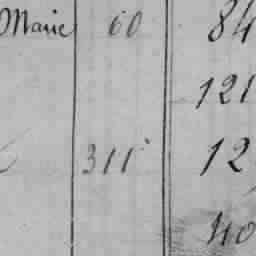 Marie 60 84
121
311 12
40